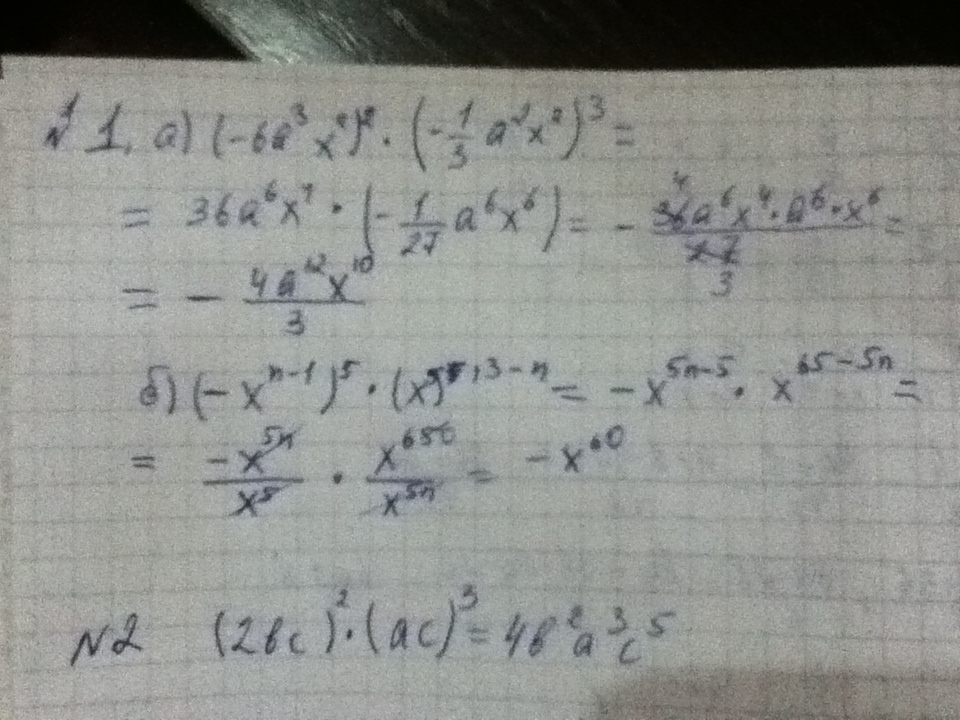 №1. а) (-6a³x²)² · (-1/3 a²x²)³ =
= 36a⁶x⁴ · (-1/27 a⁶x⁶) = - 36a⁶x⁴·a⁶·x⁶/27 =
4
3
= - 4a¹²x¹⁰/3
б) (-x^(n-1))⁵ · (x) = -x^(5n-5) · x^(65-5n) =
= -x^(5n)/x⁵ · /x^(5n) = -x⁶⁰
№2 (2bc)² · (ac)³ = 4b²a³c⁵